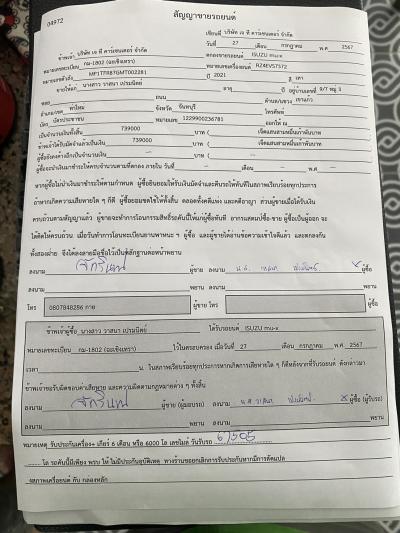 04972
สัญญาขายรถยนต์
เขียนที่ บริษัท เจ ที คาร์เซนเตอร์ จำกัด
วันที่ 27 เดือน กรกฎาคม พ.ศ. 2567
ข้าพเจ้า บริษัท เจ ที คาร์เซนเตอร์ จำกัด ตกลงขายรถยนต์ ISUZU mu-x
หมายเลขทะเบียน กม-1802 (ฉะเชิงเทรา) หมายเลขเครื่องยนต์ RZ4EVS7572
หมายเลขตัวถัง MP1TFR87GMT002281 ปี 2021 สี เทา
ขายให้แก่ นางสาว วาสนา เปรมนิตย์ อายุ ปี อยู่บ้านเลขที่ 9/7 หมู่ 3
ซอย ถนน ตำบล/แขวง เขาแก้ว
อำเภอ/เขต ท่าใหม่ จังหวัด จันทบุรี โทรศัพท์
บัตร บัตรประชาชน หมายเลข 1229900236781 ออกให้ ณ
เป็นจำนวนเงินทั้งสิ้น 739000 บาท ( เจ็ดแสนสามหมื่นเก้าพันบาท
ข้าพเจ้าได้รับมัดจำแล้วเป็นเงิน 739000 บาท ( เจ็ดแสนสามหมื่นเก้าพันบาท
ผู้ซื้อยังคงค้างอีกเป็นจำนวนเงิน - บาท ( -
ผู้ซื้อจะนำเงินมาชำระให้ครบจำนวนตามที่ตกลง ภายใน วันที่ - เดือน - พ.ศ.
หากผู้ซื้อไม่นำเงินมาชำระตามกำหนด ผู้ซื้อยินยอมให้ริบเงินมัดจำและคืนรถให้ทันทีในสภาพเรียบร้อยทุกประการ
ถ้าหากเกิดการเสียหายใด ๆ ก็ดี ผู้ซื้อยอมชดใช้ให้ทั้งสิ้น ตลอดทั้งคดีแพ่ง และคดีอาญา ส่วนผู้ขายเมื่อได้รับเงิน
ครบถ้วนตามสัญญาแล้ว ผู้ขายจะทำการโอนกรรมสิทธิ์รถคันนี้ให้แก่ผู้ซื้อทันที อากรแสตมป์ซื้อ-ขาย ผู้ซื้อเป็นผู้ออก จะ
ได้คิดให้ครบถ้วน เมื่อวันทำการโอนทะเบียนยานพาหนะ ฯ ผู้ซื้อ และผู้ขายได้อ่านข้อความเข้าใจดีแล้ว และตกลงกัน
ทั้งสองฝ่าย จึงได้ลงลายมือชื่อไว้เป็นหลักฐานต่อหน้าพยาน
ลงนาม ผู้ขาย ลงนาม ผู้ซื้อ
ลงนาม พยาน ลงนาม พยาน
โทร 0807848286 กาย ผู้ขาย โทร ผู้ซื้อ
ข้าพเจ้าผู้ซื้อ นางสาว วาสนา เปรมนิตย์ ได้รับรถยนต์ ISUZU mu-x
หมายเลขทะเบียน กม-1802 (ฉะเชิงเทรา) ไว้ในครอบครอง เมื่อวันที่ 27 เดือน กรกฎาคม พ.ศ. 2567
เวลา น. ในสภาพเรียบร้อยทุกประการหากเกิดการเสียหายใด ๆ ก็ดีหลังจากที่รับรถยนต์ ดังกล่าวมา
ข้าพเจ้าขอรับผิดชอบค่าเสียหาย และความผิดตามกฎหมายต่าง ๆ ทั้งสิ้น
ลงนาม ผู้ขาย (ผู้มอบรถ) ลงนาม x ผู้ซื้อ (ผู้รับรถ)
ลงนาม พยาน ลงนาม พยาน
หมายเหตุ รับประกันเครื่อง+ เกียร์ 6 เดือน หรือ 6000 โล เลขไมล์ วันรับรถ
โล รถคันนี้มีเพียง พรบ ให้ ไม่มีประกันอุบัติเหตุ ทางร้านขอยกเลิกการรับประกันหากมีการดัดแปลง
สภาพเครื่อยนต์ กับ กล่องหลัก